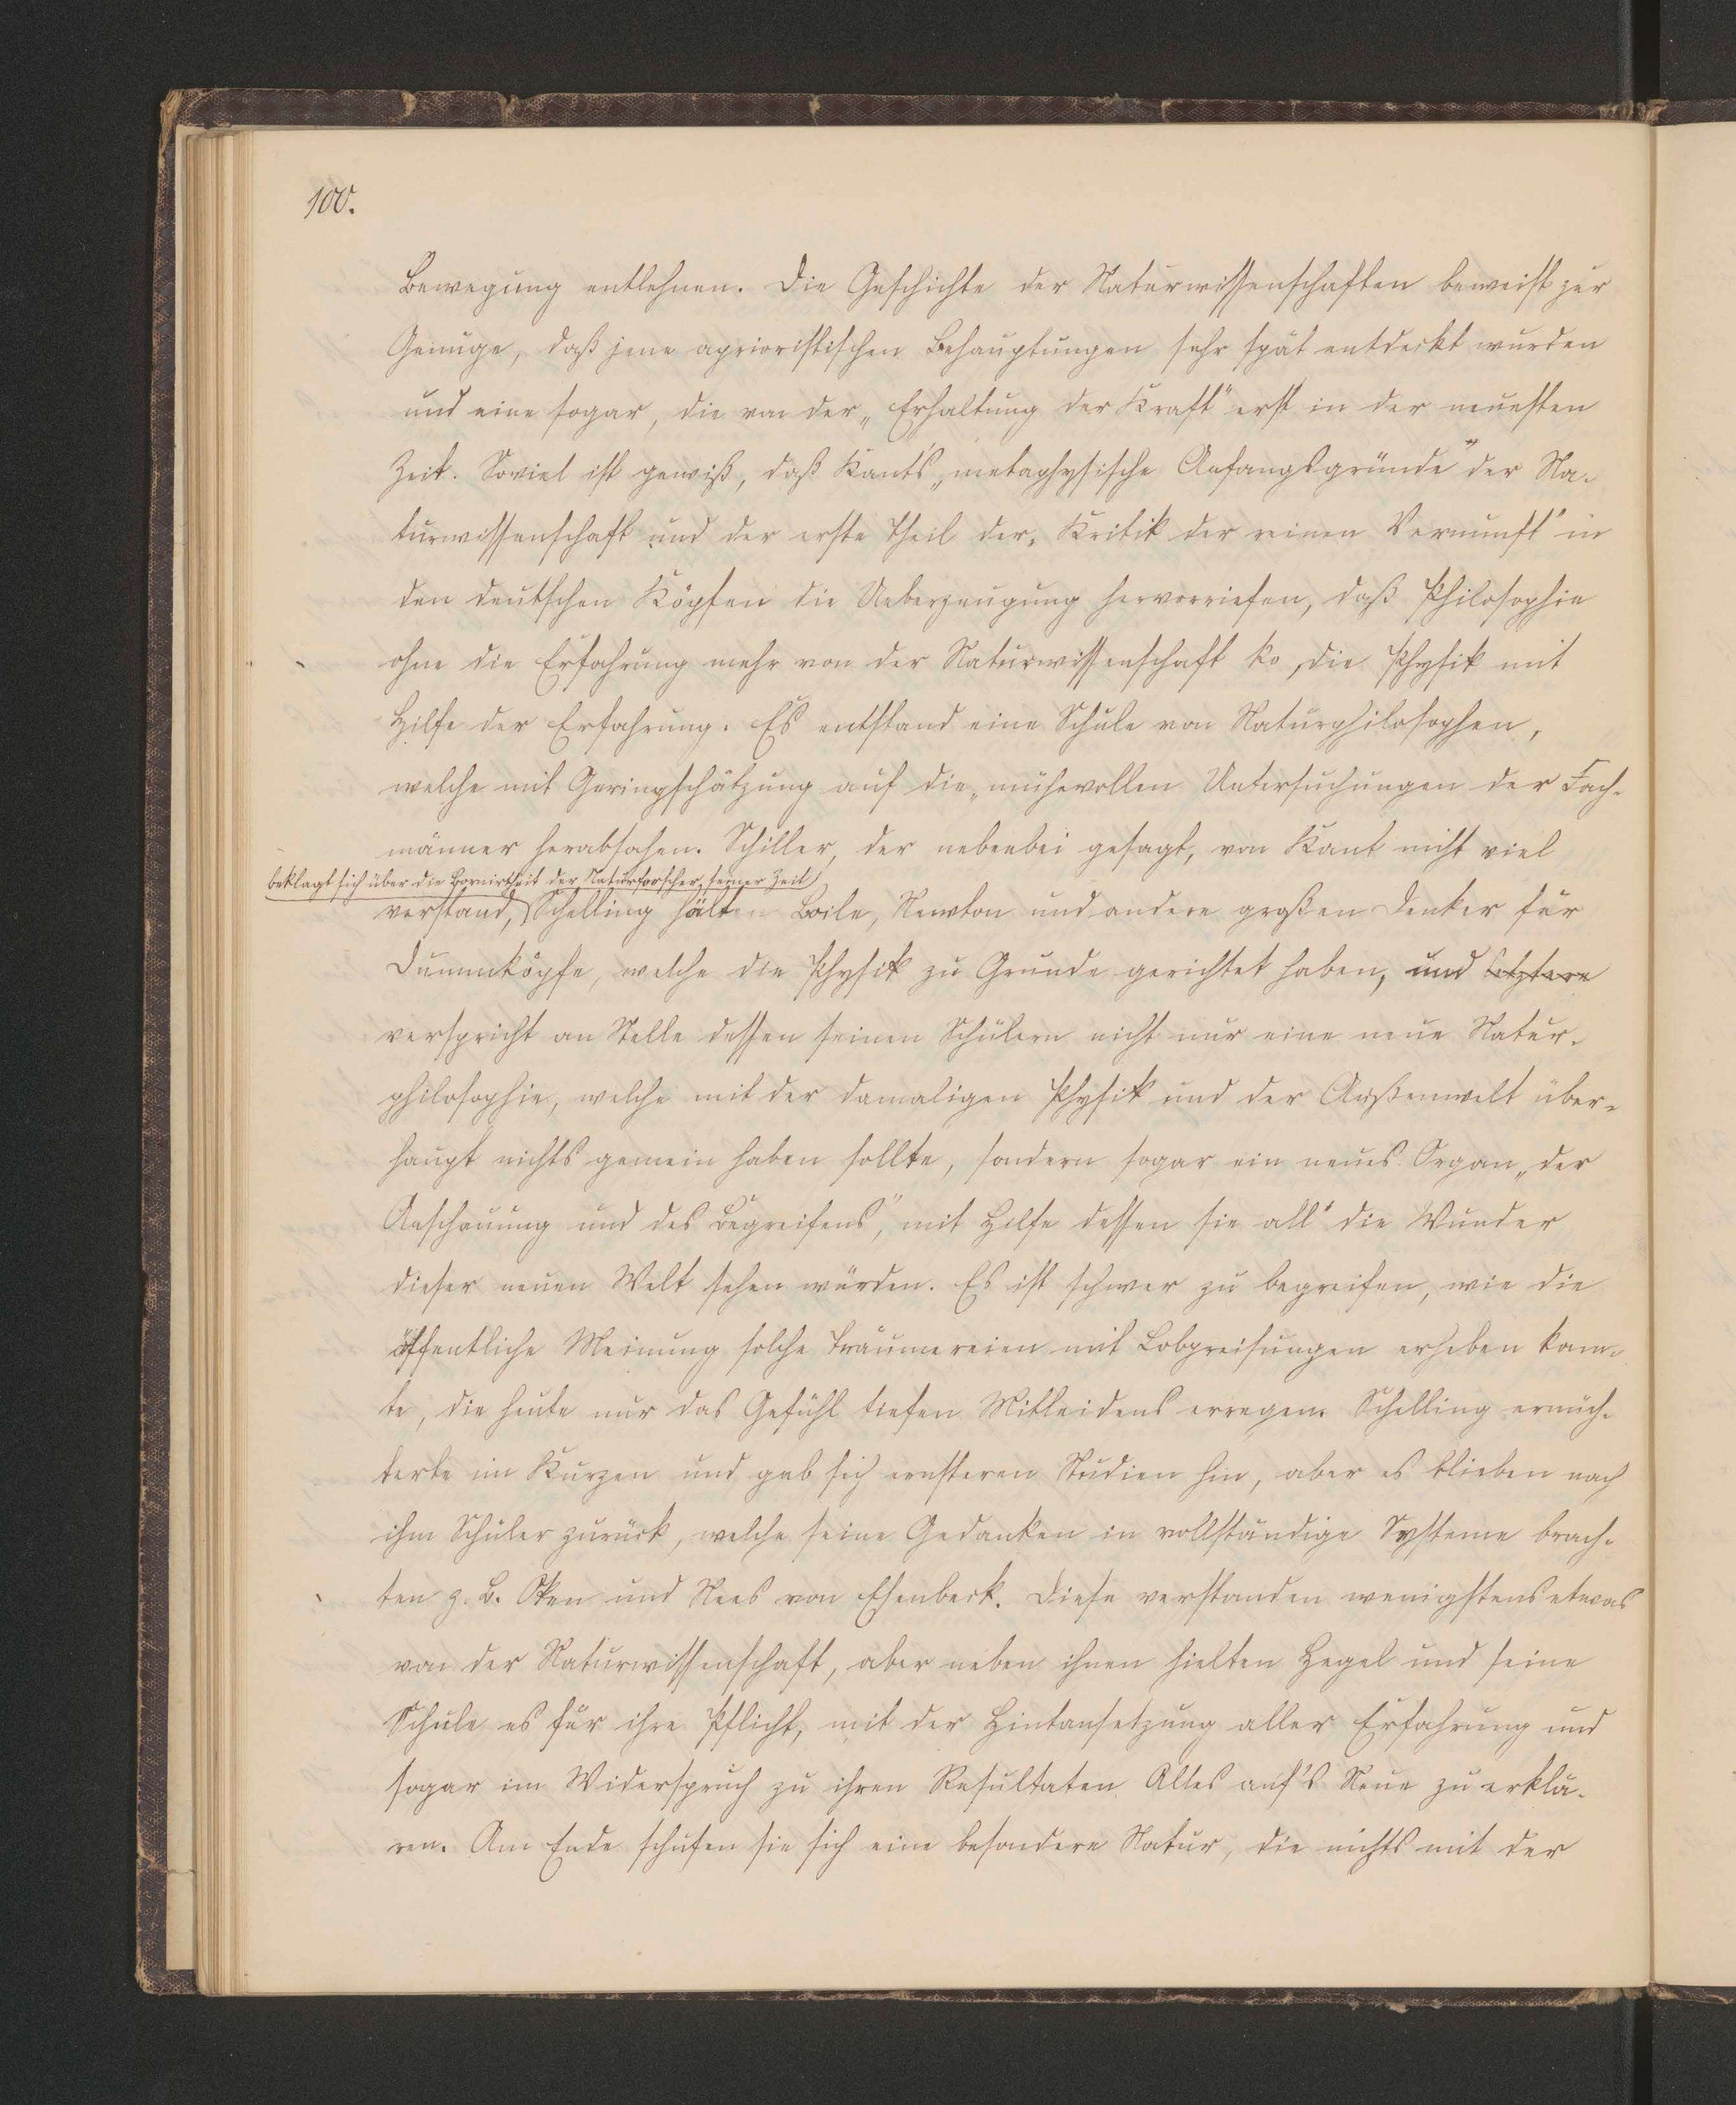 100.
Bewegung entlehnen. Die Geschichte der Naturwissenschaften beweist zur
Genüge, daß jene aprioristischen Behauptungen sehr spät entdeckt wurden
und eine sogar, die von der „Erhaltung der Kraft" erst in der neuesten
Zeit. Soviel ist gewiß, daß Kants „metaphysische Anfangsgründe" der Na-
turwissenschaft und der erste Theil der „Kritik der reinen Vernunft" in
den deutschen Köpfen die Ueberzeugung hervorriefen, daß Philosophie
ohne die Erfahrung mehr von der Naturwissenschaft , die Physik mit
Hilfe der Erfahrung. Es entstand eine Schule von Naturphilosophen,
welche mit Geringschätzung auf die mühevollen Untersuchungen der Fach-
männer herabsahen. Schiller, der nebenbei gesagt, von Kant nicht viel
beklagt sich über die Bornirtheit der Naturforscher seiner Zeit
verstand, Schelling hält Boile, Newton und andere großen Denker für
Dummköpfe, welche die Physik zu Grunde gerichtet haben, und letztere
verspricht an Stelle dessen seinen Schülern nicht nur eine neue Natur-
philosophie, welche mit der damaligen Physik und der Außenwelt über-
haupt nichts gemein haben sollte, sondern sogar ein neues Organ „der
Anschauung und des Begreifens", mit Hilfe dessen sie all' die Wunder
dieser neuen Welt sehen würden. Es ist schwer zu begreifen, wie die
öffentliche Meinung solche Träumereien mit Lobpreisungen erheben konn-
te, die heute nur das Gefühl tiefen Mitleidens erregen. Schelling ernüch-
terte im Kurzen und gab sich ernsteren Studien hin, aber es blieben nach
ihm Schüler zurück, welche seine Gedanken in vollständige Systeme brach-
ten z. B. Oken und Nees von Esenbeck. Diese verstanden wenigstens etwas
von der Naturwissenschaft, aber neben ihnen hielten Hegel und seine
Schule es für ihre Pflicht, mit der Hintansetzung aller Erfahrung und
sogar im Widerspruch zu ihren Resultaten Alles auf's Neue zu erklä-
ren. Am Ende schufen sie sich eine besondere Natur, die nichts mit der